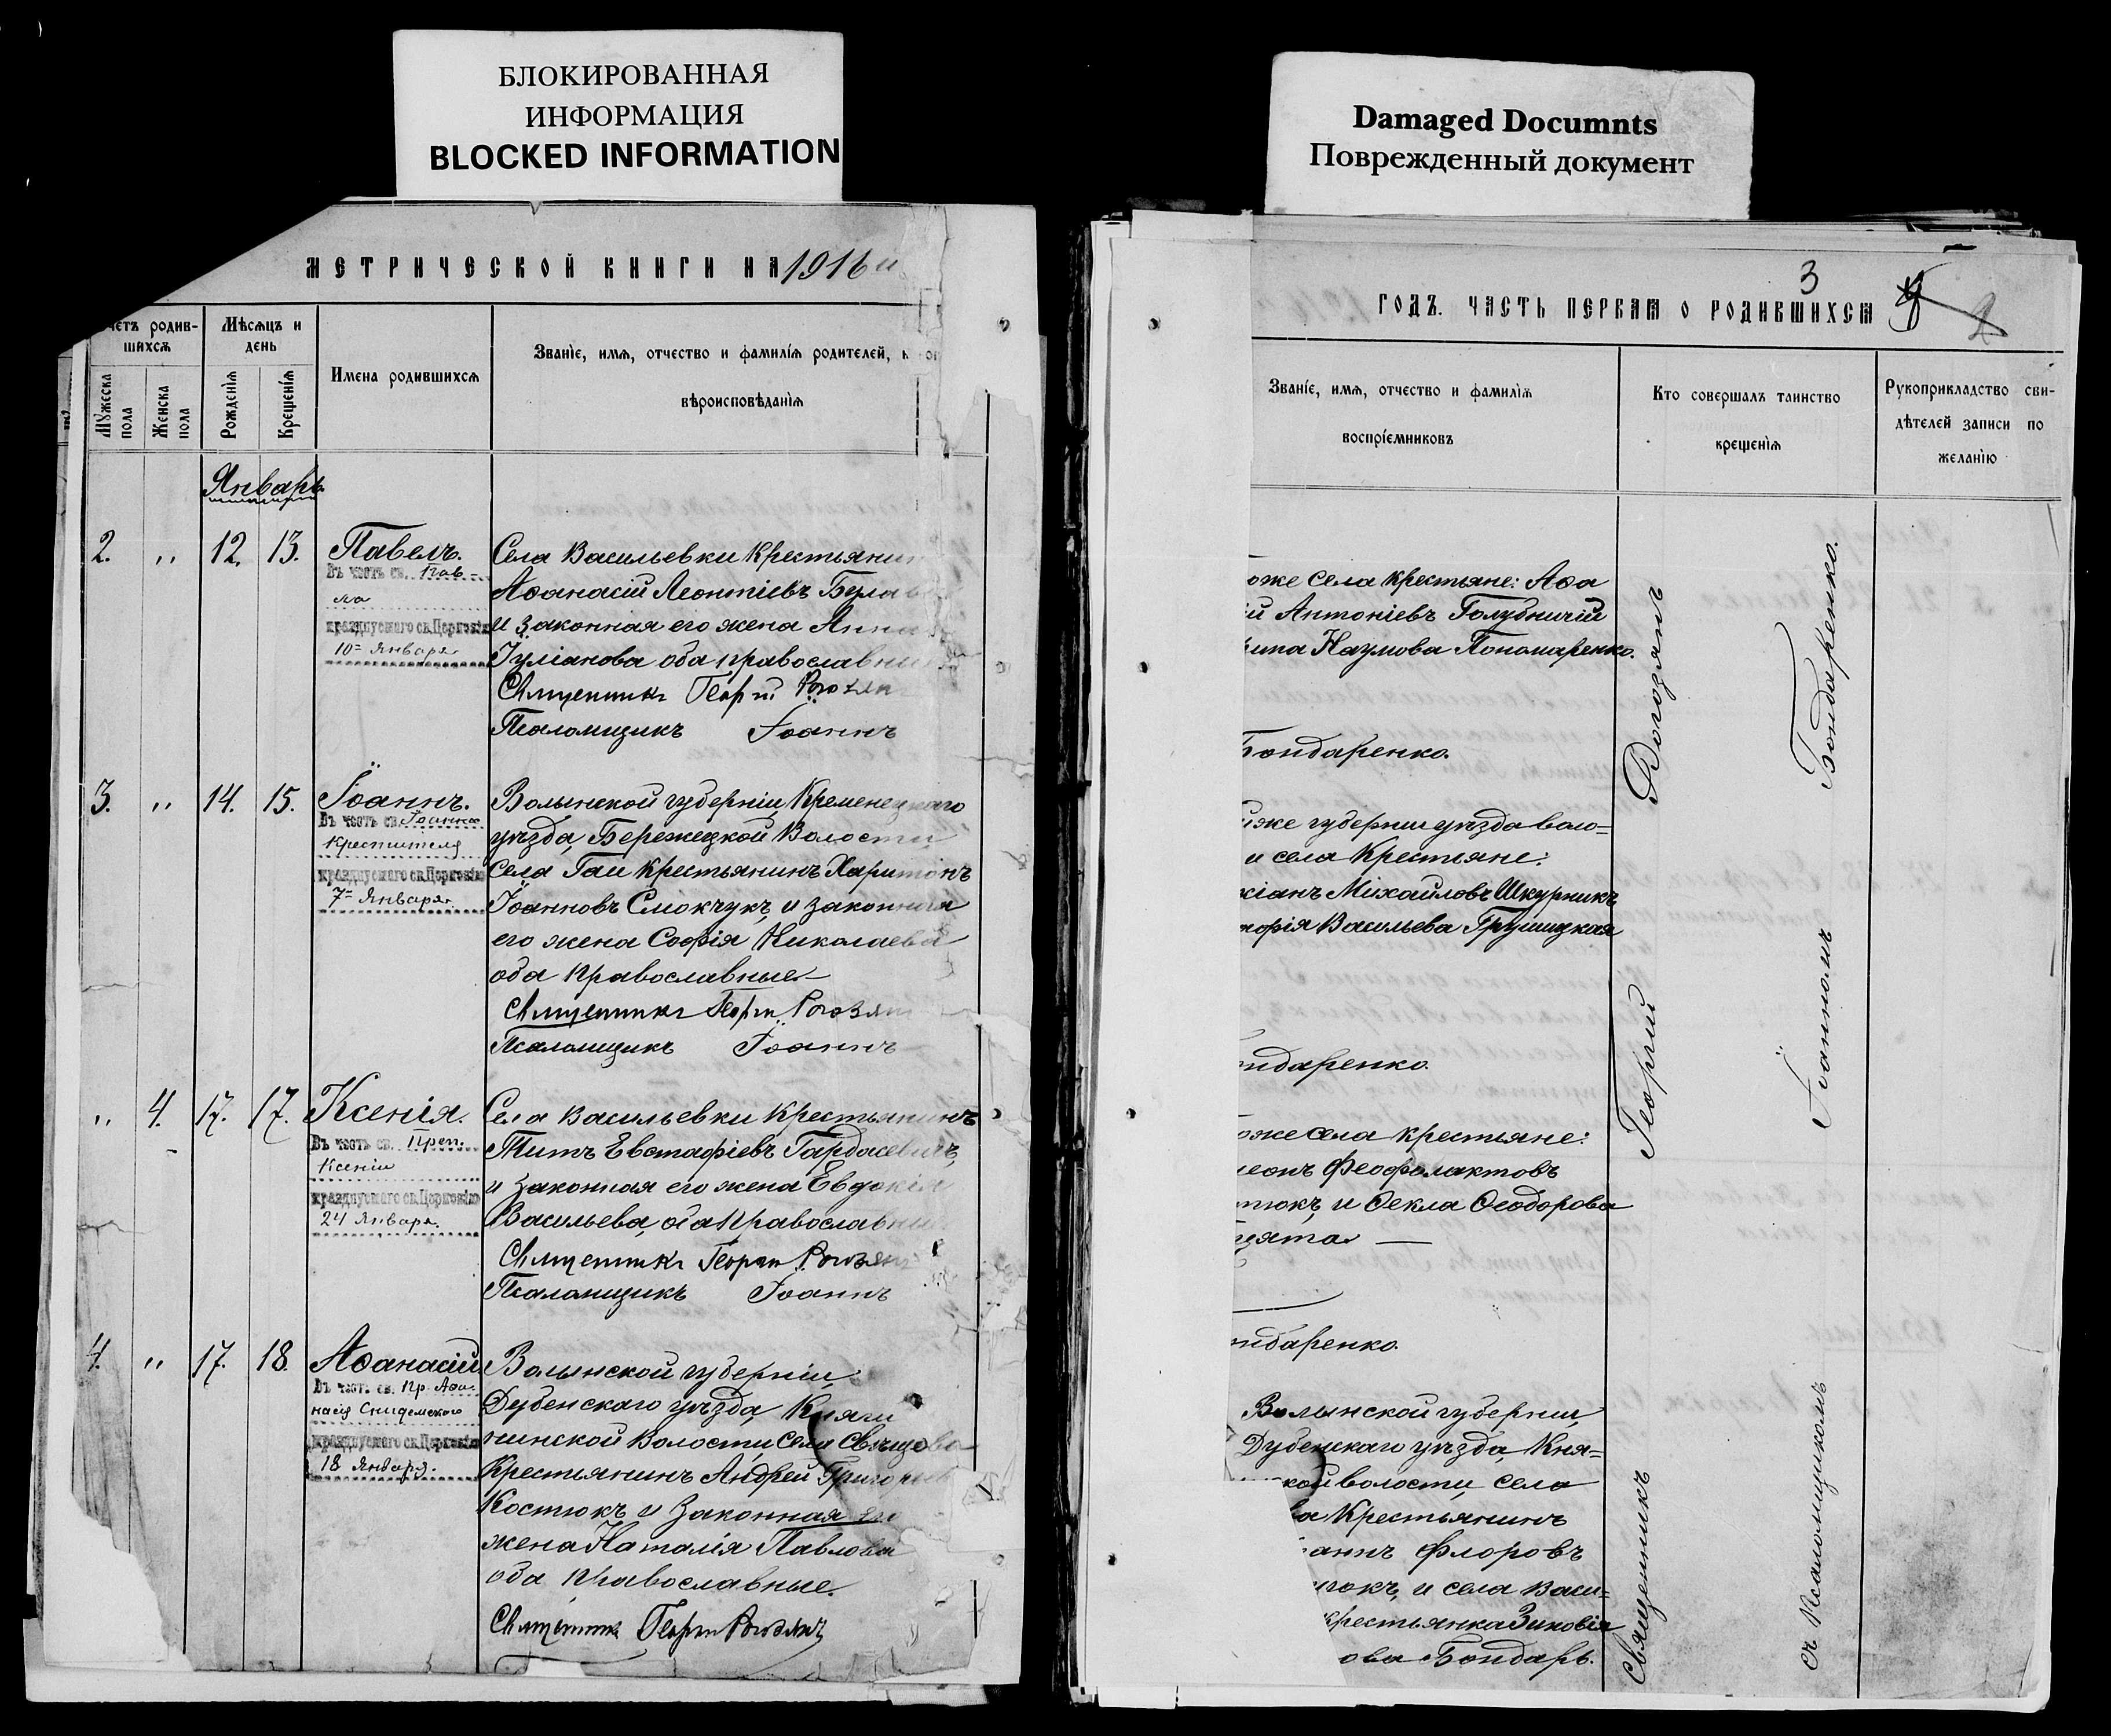 БЛОКИРОВАННАЯ
ИНФОРМАЦИЯ
BLOCKED INFORMATION
Damaged Documnts
Поврежденный документ
МЕТРИЧЕСКОЙ КНИГИ НА 1916 й
четъ родив-
шихся
Мѣсяцъ и
день
Мужеска
пола
Женска
пола
Рожденія
Крещенія
Имена родившихся
Званіе, имя, отчество и фамилія родителей, к
вѣроисповѣданія
Январь
2. " 12. 13. Павелъ.
Въ честь св. Пав-
ла
празднуемаго св. Церковію
10 Января
Села Васильевки крестьянин
Аѳанасій Леонтіевъ Була
и законная его жена Анна
Іуліанова оба православны
Священникъ Георгій
Псаломщикъ Іоаннъ
3. " 14. 15. Іоаннъ.
Въ честь св. Іоанна
Крестителя
празднуемаго св. Церковію
7 Января.
Волынской губерніи, Кременецкаго
уѣзда, Бережецкой Волости
села Гаи крестьянинъ Харитонъ
Іоанновъ Смокчукъ, и законная
его жена Софія Николаева
оба православные
Священникъ Георгій
Псаломщикъ Іоаннъ
" 4. 17. 17. Ксенія.
Въ честь св. Преп.
Ксеніи
празднуемаго св. Церковію
24 Января.
Села Васильевки крестьянинъ
Титъ Евстафіевъ Гардасевичъ,
и законная его жена Евдокія
Васильева, оба православны
Священникъ Георгій
Псаломщикъ Іоаннъ
4. " 17. 18. Аѳанасій.
Въ честь св. Пр. Аѳа-
насія
празднуемаго св. Церковію
18 Января.
Волынской губерніи,
Дубенскаго уѣзда, Княги
нинской Волости, села
Крестьянинъ Андрей Григорьев
Костюкъ и законная его
жена Наталія Павлова
оба православные.
Священникъ Георгій
3
2
ГОДЪ. ЧАСТЬ ПЕРВАЯ О РОДИВШИХСЯ
Званіе, имя, отчество и фамилія
воспріемниковъ
Кто совершалъ таинство
крещенія
Рукоприкладство сви-
дѣтелей записи по
желанію
оже села крестьяне: Аѳа
ій Антоніевъ Голубничій
рина Наумова Пономаренко.
Бондаренко.
йже губерніи уѣзда воло=
и села Крестьяне:
кіанъ Михайловъ Шкурникъ
офія Васильева Грушицкая
ндаренко
оже села крестьяне:
леонъ Феофилактовъ
тюкъ, и Ѳекла Ѳеодорова
цята
ндаренко.
Волынской губерніи,
Дубенскаго уѣзда, Кня=
кой волости, села
ва Крестьянинъ
аннъ Флоровъ
тюкъ, и села Васи=
крестьянка Зиновія
ова Бондарь.
Священникъ Георгій
съ Псаломщикомъ Іоанномъ Бондаренко.